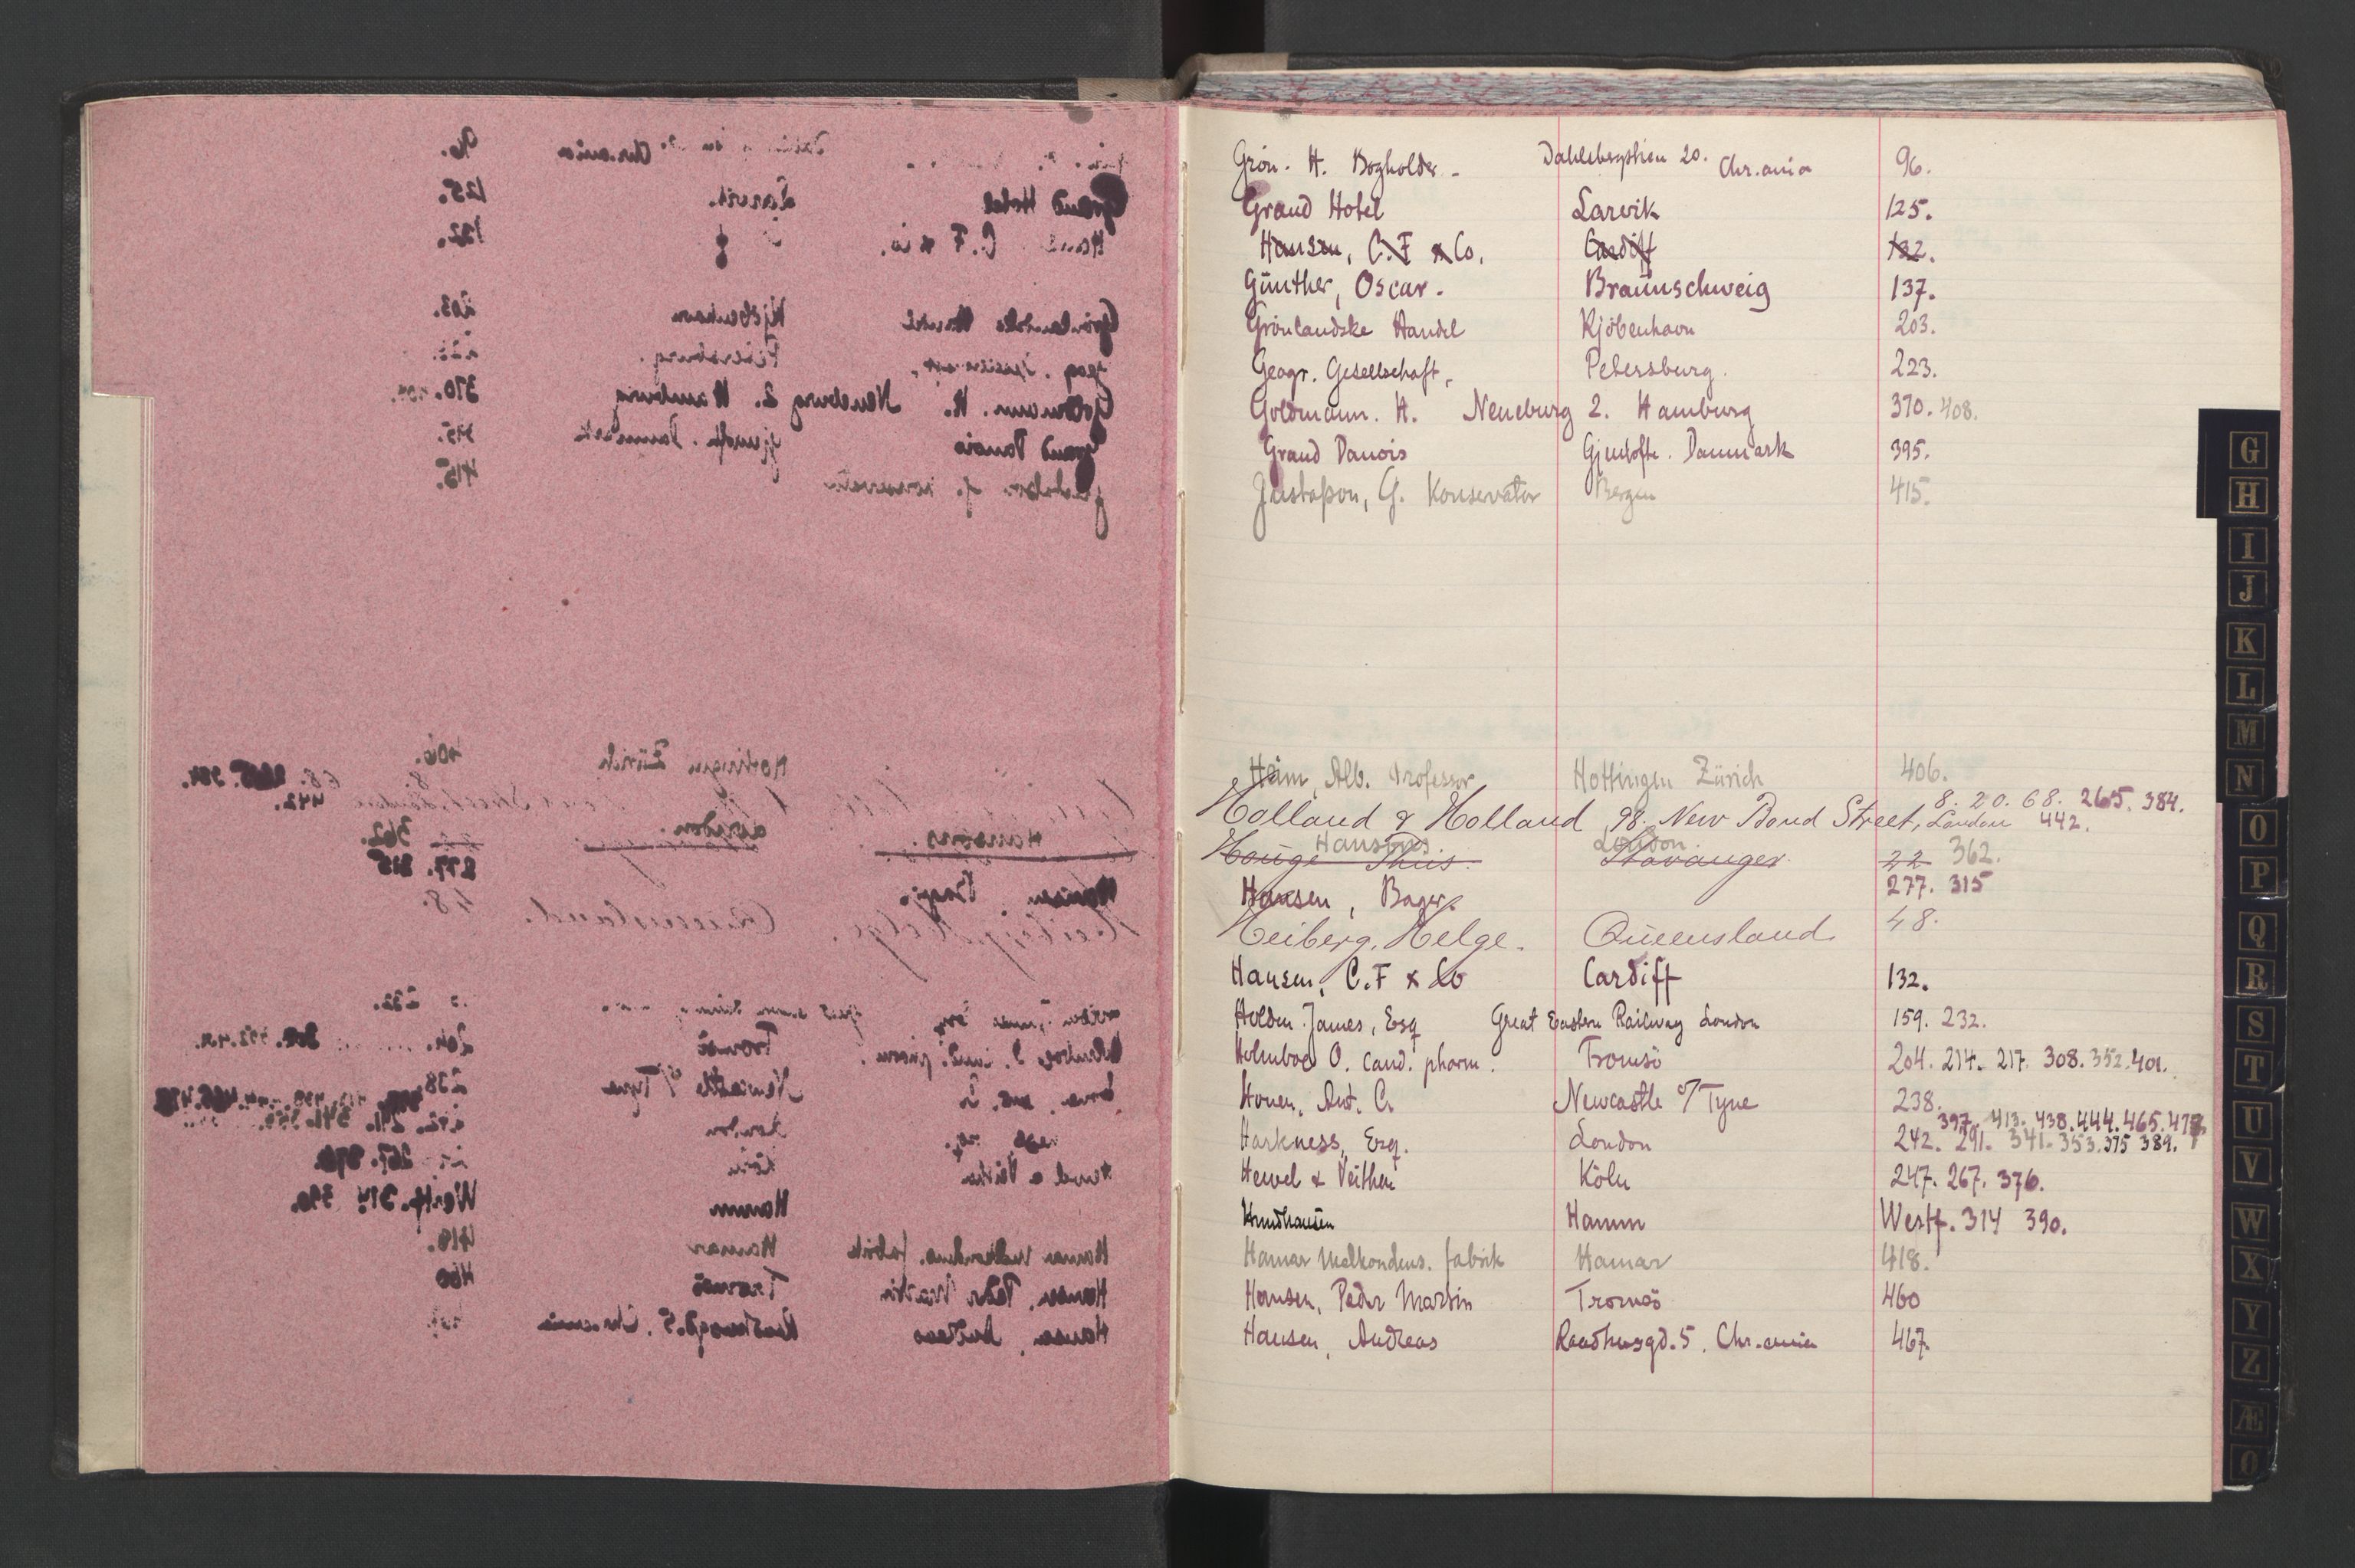 Grön. H. Bogholder - Dahlsbergstien 20. Chr.ania 96.
Grand Hotel Larvik 125.
Hansen, C.F & Co. Cardiff 132.
Günther, Oscar. Braunschweig 137.
Grönlandske Handel Kjöbenhavn 203.
Geogr. Gesellschaft, Petersburg. 223.
Goldmann. H. Neueburg 2. Hamburg 370. 408.
Grand Danois Gjentofte. Danmark 395.
Gustafson, G. Konservator Bergen 415.
Heim, Alb. Professor Hottingen Zürich 406.
8. 20. 68. 265. 384.
Holland & Holland 98. New Bond Street, London 442.
Hansons London. 362.
Hauge Thiis. Stavanger 22
Hansen, Bager. 277. 315
Heiberg, Helge. Queensland. 48.
Hansen, C.F & Co Cardiff 132.
Holden James, Esq Great Eastern Railway London 159. 232.
Holmboe O. cand. pharm. Tromsö 204. 214. 217. 308. 352. 401.
Houen, Ant. C. Newcastle o/ Tyne 238.
397. 413. 438. 444. 465. 478
Harkness, Esq. London 242. 291. 341. 353. 375 389.
Hewel & Veithen Köln 247. 267. 376.
Hundhausen Hamm Westf. 314 390.
Hamar Melkondens. fabrik Hamar 418.
Hansen, Peder Martin Tromsö 460
Hansen, Andreas Raadhusgd. 5. Chr.ania 467.
G
H
I
J
K
L
M
N
O
P
Q
R
S
T
U
V
W
X
Y
Z
Æ
Ø